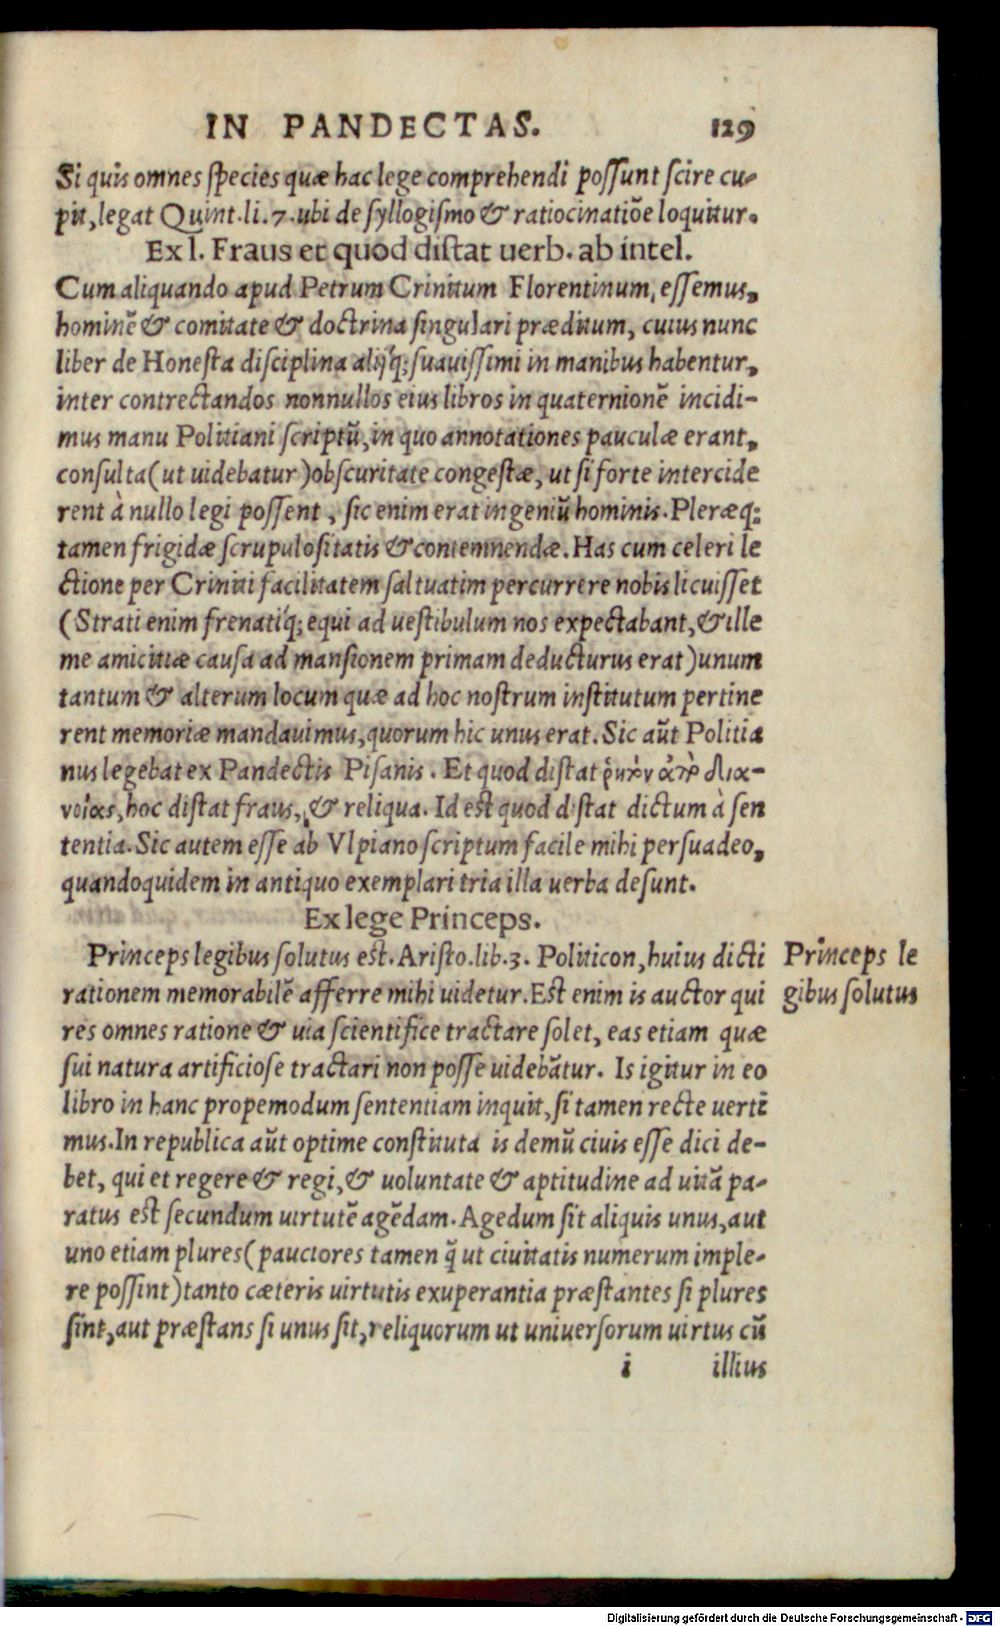 IN PANDECTAS. 129
Si quis omnes species quæ hac lege comprehendi possunt scire cu-
pit, legat Quint.li.7.ubi de syllogismo & ratiocinatiõe loquitur.
Ex l. Fraus et quod distat uerb. ab intel.
Cum aliquando apud Petrum Crinitum Florentinum, essemus,
hominẽ & comitate & doctrina singulari præditum, cuius nunc
liber de Honesta disciplina alijq; suauissimi in manibus habentur,
inter contrectandos nonnullos eius libros in quaternionẽ incidi-
mus manu Politiani scriptũ, in quo annotationes pauculæ erant,
consulta (ut uidebatur) obscuritate congestæ, ut si forte intercide
rent à nullo legi possent, sic enim erat ingeniũ hominis. Pleræq;
tamen frigidæ scrupulositatis & contemnendæ. Has cum celeri le
ctione per Criniti facilitatem saltuatim percurrere nobis licuisset
(Strati enim frenatiq; equi ad uestibulum nos expectabant, & ille
me amicitiæ causa ad mansionem primam deducturus erat) unum
tantum & alterum locum quæ ad hoc nostrum institutum pertine
rent memoriæ mandauimus, quorum hic unus erat. Sic aũt Politia
nus legebat ex Pandectis Pisanis. Et quod distat ῥητὸν ἀπὸ δια-
νοίας, hoc distat fraus, & reliqua. Id est quod distat dictum à sen
tentia. Sic autem esse ab Vlpiano scriptum facile mihi persuadeo,
quandoquidem in antiquo exemplari tria illa uerba desunt.
Ex lege Princeps.
Princeps legibus solutus est. Aristo.lib.3. Politicon, huius dicti
rationem memorabilẽ afferre mihi uidetur. Est enim is auctor qui
res omnes ratione & uia scientifice tractare solet, eas etiam quæ
sui natura artificiose tractari non posse uidebãtur. Is igitur in eo
libro in hanc propemodum sententiam inquit, si tamen recte uertĩ
mus. In republica aũt optime constituta is demũ ciuis esse dici de-
bet, qui et regere & regi, & uoluntate & aptitudine ad uitã pa-
ratus est secundum uirtutẽ agẽdam. Agedum sit aliquis unus, aut
uno etiam plures (pauciores tamen q̃ ut ciuitatis numerum imple-
re possint) tanto cæteris uirtutis exuperantia præstantes si plures
sint, aut præstans si unus sit, reliquorum ut uniuersorum uirtus cũ
i illius
Princeps le
gibus solutus
Digitalisierung gefördert durch die Deutsche Forschungsgemeinschaft - DFG